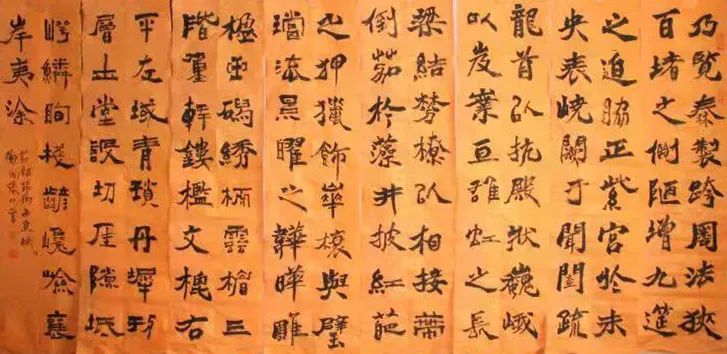 乃覽秦製跨周法狹
百堵之側陋增九筵
之迫脇正紫宮於未
央表嶢闕于閶闔疏
龍首以抗殿狀巍峨
以岌嶪亘雄虹之長
梁結棼橑以相接蒂
倒茄於藻井披紅葩
之狎獵飾華榱與璧
璫流景曜之韡曄雕
楹玉碣繡栭雲楣三
階重軒鏤檻文㮰右
平左域青瑣丹墀刊
層土堂設切厓隒坻
崿鱗眴棧齴巉嶮襄
岸夷涂
節錄張衡西京賦